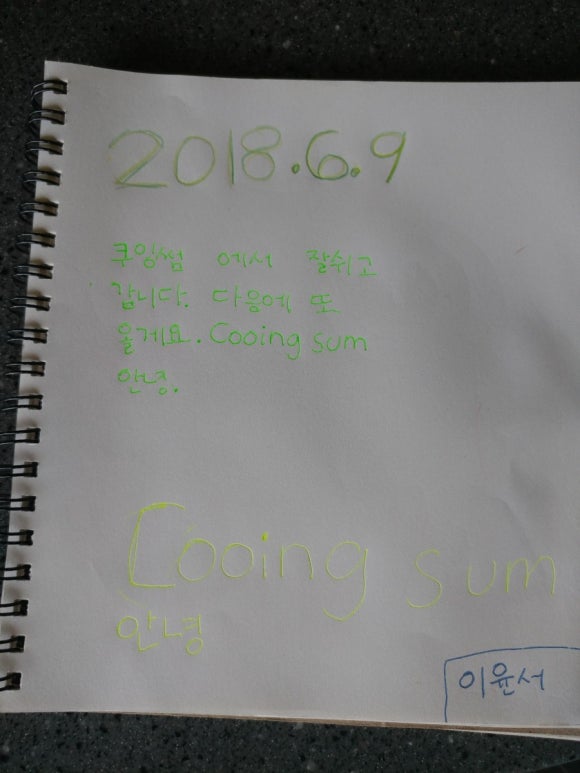 2018.6.9
쿠잉썸 에서 잘쉬고
갑니다. 다음에 또
올게요. Cooing sum
안녕.
Cooing sum
안녕
이윤서